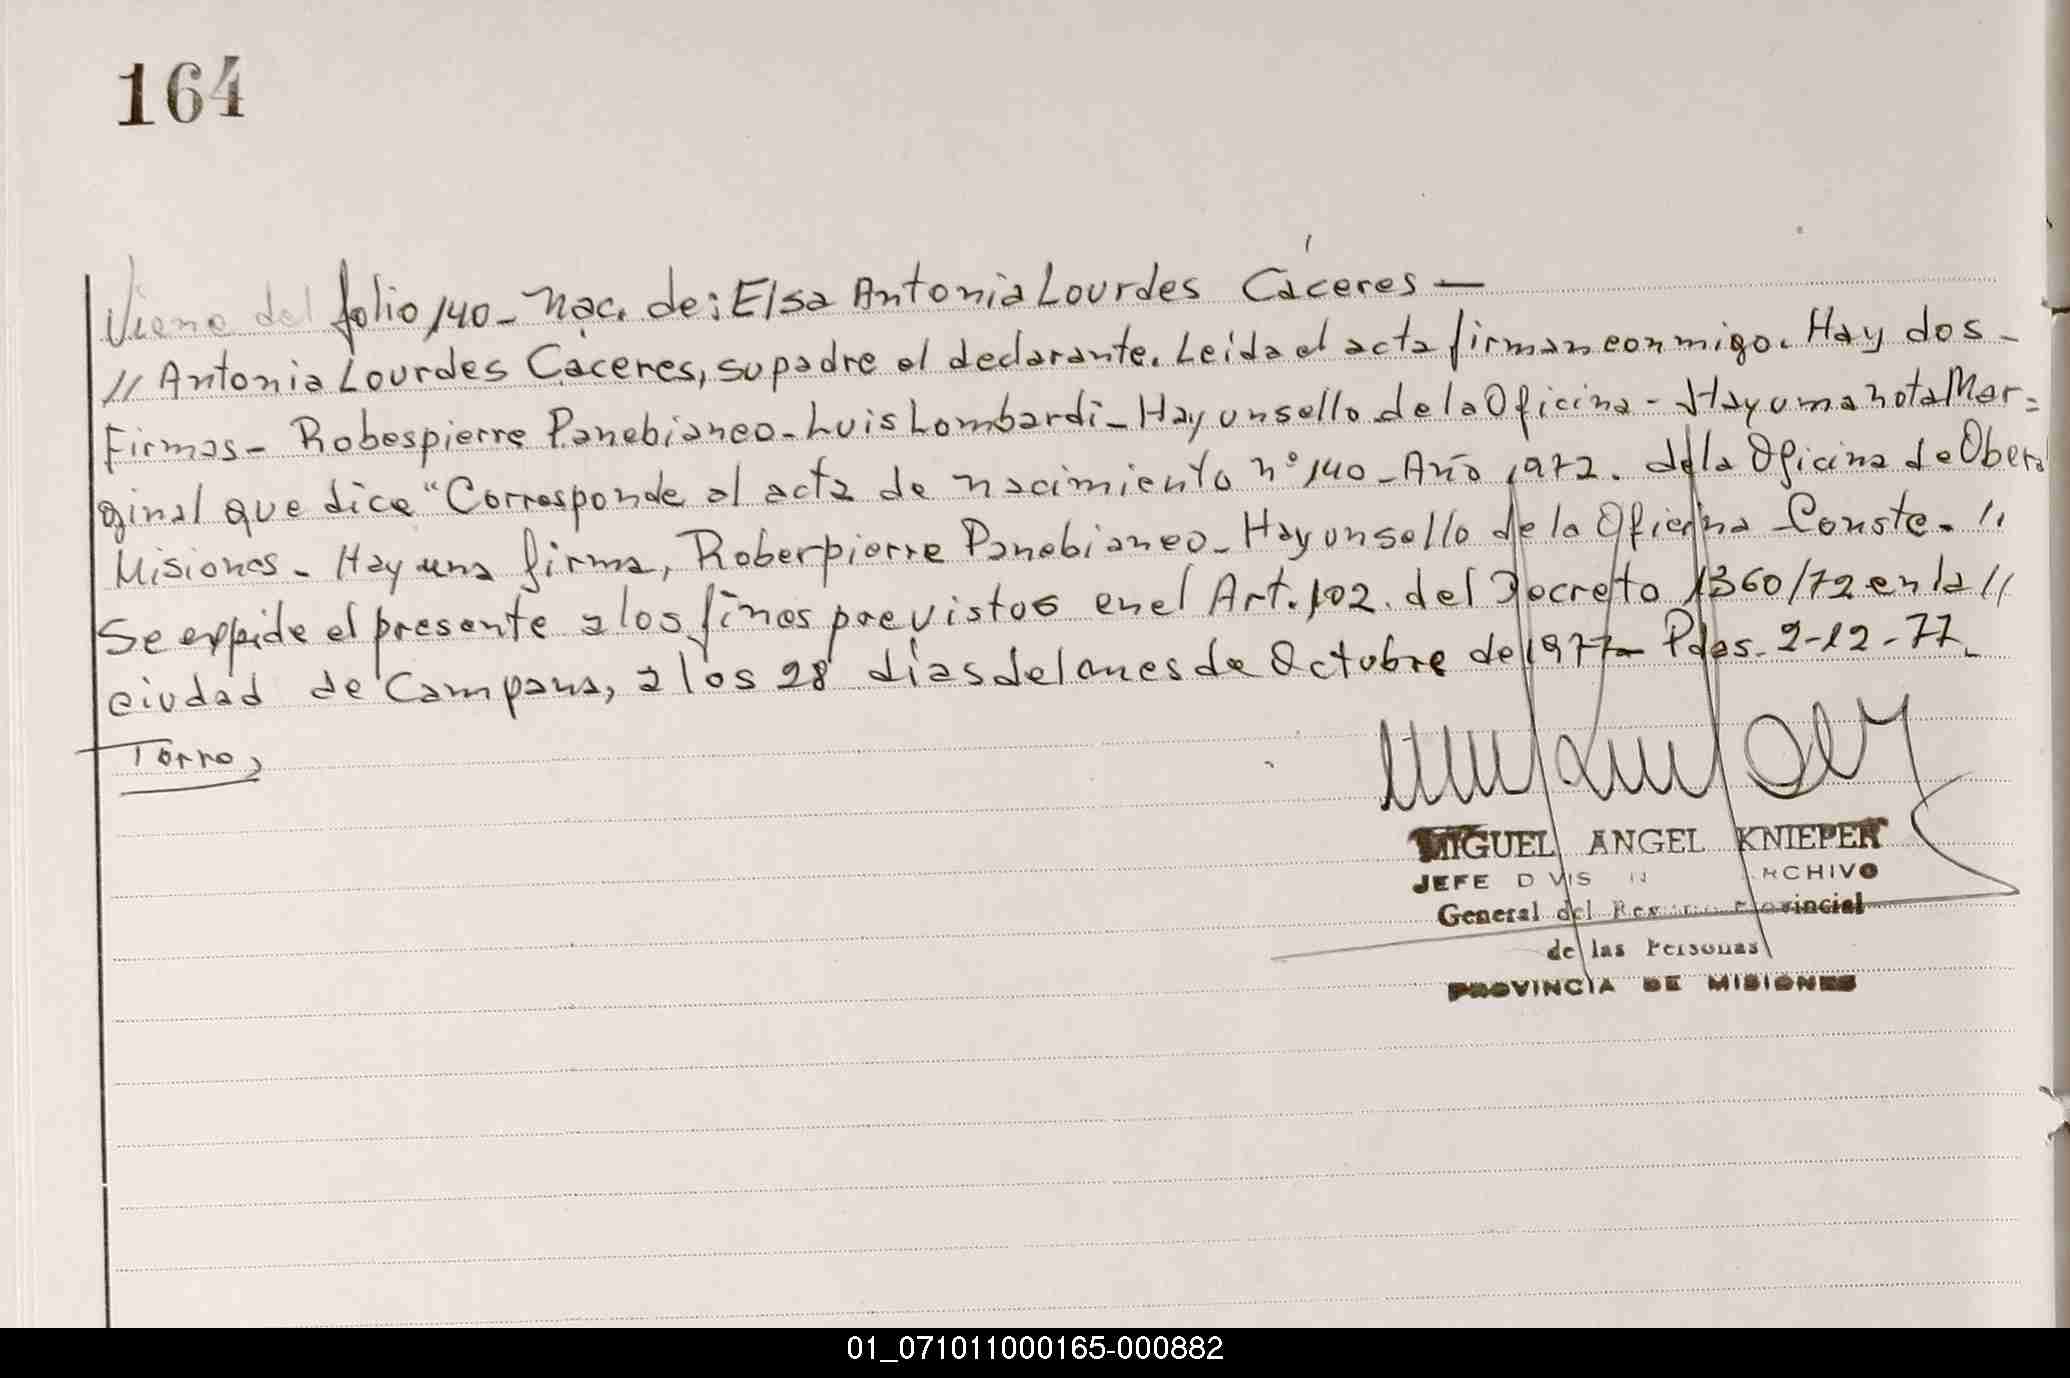 164
Viene del folio 140 - Nac. de: Elsa Antonia Lourdes Cáceres —
// Antonia Lourdes Cáceres, su padre el declarante. Leida el acta firman conmigo. Hay dos -
Firmas - Robespierre Panebianco - Luis Lombardi - Hay un sello de la Oficina - Hay una nota Mar=
ginal que dice "Corresponde al acta de nacimiento nº 140 - Año 1972. de la Oficina de Obera
Misiones - Hay una firma, Roberpierre Panebianco - Hay un sello de la Oficina - Conste. //
Se expide el presente a los fines previstos en el Art. 102. del Decreto 1360/72 en la //
ciudad de Campana, a los 28 días del mes de Octubre de 1977 - Pdas. 2-12-77.
Torro,
MIGUEL ANGEL KNIEPER
JEFE D VIS N RCHIVO
General del Registro Provincial
de las Personas
PROVINCIA DE MISIONES
01_071011000165-000882